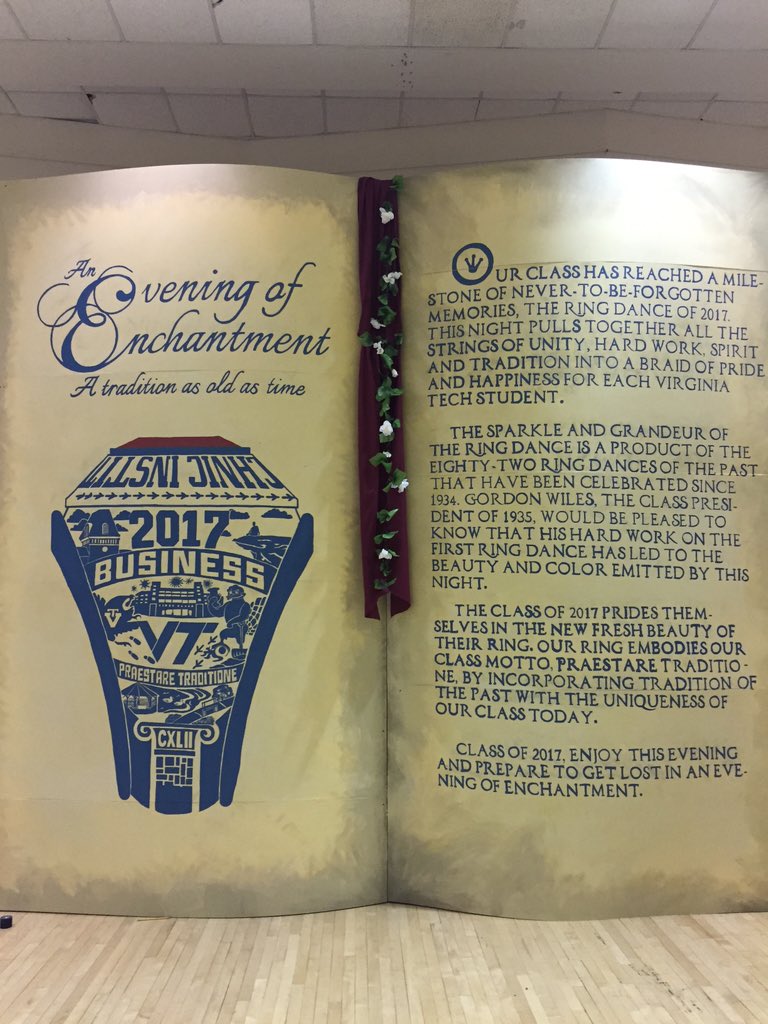 An
Evening of
Enchantment
A tradition as old as time
CHNIC INSTIT
2017
BUSINESS
VT
VT
PRAESTARE TRADITIONE
CXLII
OUR CLASS HAS REACHED A MILE-
STONE OF NEVER-TO-BE-FORGOTTEN
MEMORIES, THE RING DANCE OF 2017.
THIS NIGHT PULLS TOGETHER ALL THE
STRINGS OF UNITY, HARD WORK, SPIRIT
AND TRADITION INTO A BRAID OF PRIDE
AND HAPPINESS FOR EACH VIRGINIA
TECH STUDENT.
THE SPARKLE AND GRANDEUR OF
THE RING DANCE IS A PRODUCT OF THE
EIGHTY-TWO RING DANCES OF THE PAST
THAT HAVE BEEN CELEBRATED SINCE
1934. GORDON WILES, THE CLASS PRESI-
DENT OF 1935, WOULD BE PLEASED TO
KNOW THAT HIS HARD WORK ON THE
FIRST RING DANCE HAS LED TO THE
BEAUTY AND COLOR EMITTED BY THIS
NIGHT.
THE CLASS OF 2017 PRIDES THEM-
SELVES IN THE NEW FRESH BEAUTY OF
THEIR RING. OUR RING EMBODIES OUR
CLASS MOTTO, PRAESTARE TRADITIO-
NE, BY INCORPORATING TRADITION OF
THE PAST WITH THE UNIQUENESS OF
OUR CLASS TODAY.
CLASS OF 2017, ENJOY THIS EVENING
AND PREPARE TO GET LOST IN AN EVE-
NING OF ENCHANTMENT.